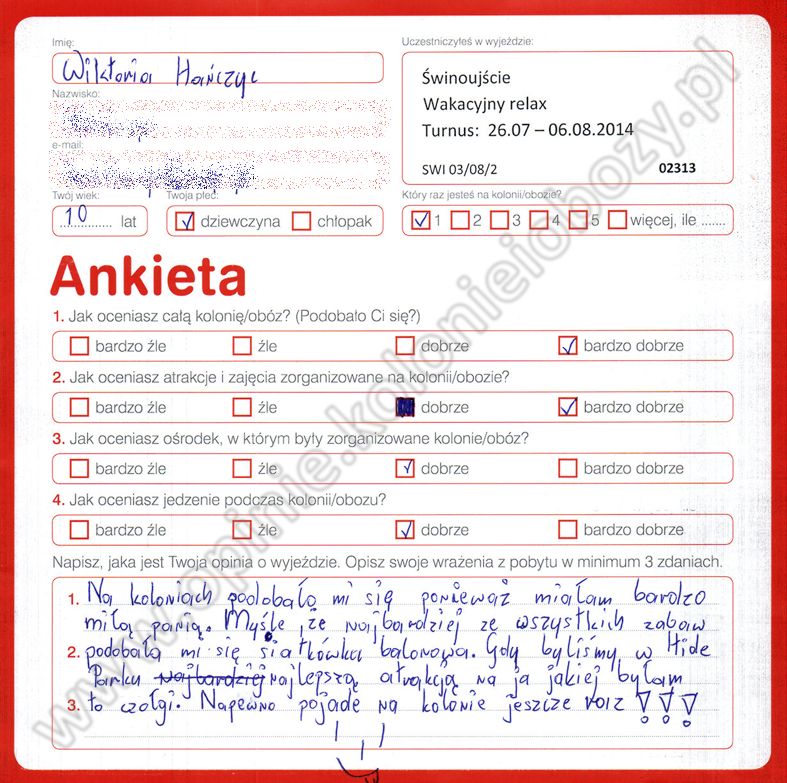 Imię:
Wiktoria Hańczyc
Nazwisko:
e-mail:
Twój wiek:
10 lat
Twoja płeć:
dziewczyna chłopak
Uczestniczyłeś w wyjeździe:
Świnoujście
Wakacyjny relax
Turnus: 26.07 – 06.08.2014
SWI 03/08/2 02313
Który raz jesteś na kolonii/obozie?
1 2 3 4 5 więcej, ile .......
Ankieta
1. Jak oceniasz całą kolonię/obóz? (Podobało Ci się?)
bardzo źle źle dobrze bardzo dobrze
2. Jak oceniasz atrakcje i zajęcia zorganizowane na kolonii/obozie?
bardzo źle źle dobrze bardzo dobrze
3. Jak oceniasz ośrodek, w którym były zorganizowane kolonie/obóz?
bardzo źle źle dobrze bardzo dobrze
4. Jak oceniasz jedzenie podczas kolonii/obozu?
bardzo źle źle dobrze bardzo dobrze
Napisz, jaka jest Twoja opinia o wyjeździe. Opisz swoje wrażenia z pobytu w minimum 3 zdaniach.
1. Na koloniach podobało mi się ponieważ miałam bardzo
miłą panią. Myśle, że najbardziej ze wszystkich zabaw
2. podobała mi się siatkówka balonowa. Gdy byliśmy w Hide
Parku najbardziej najlepszą atrakcją na ja jakiej byłam
3. to czołgi. Napewno pojade na kolonie jeszcze raz !!!
www.opinie.kolonieiobozy.pl